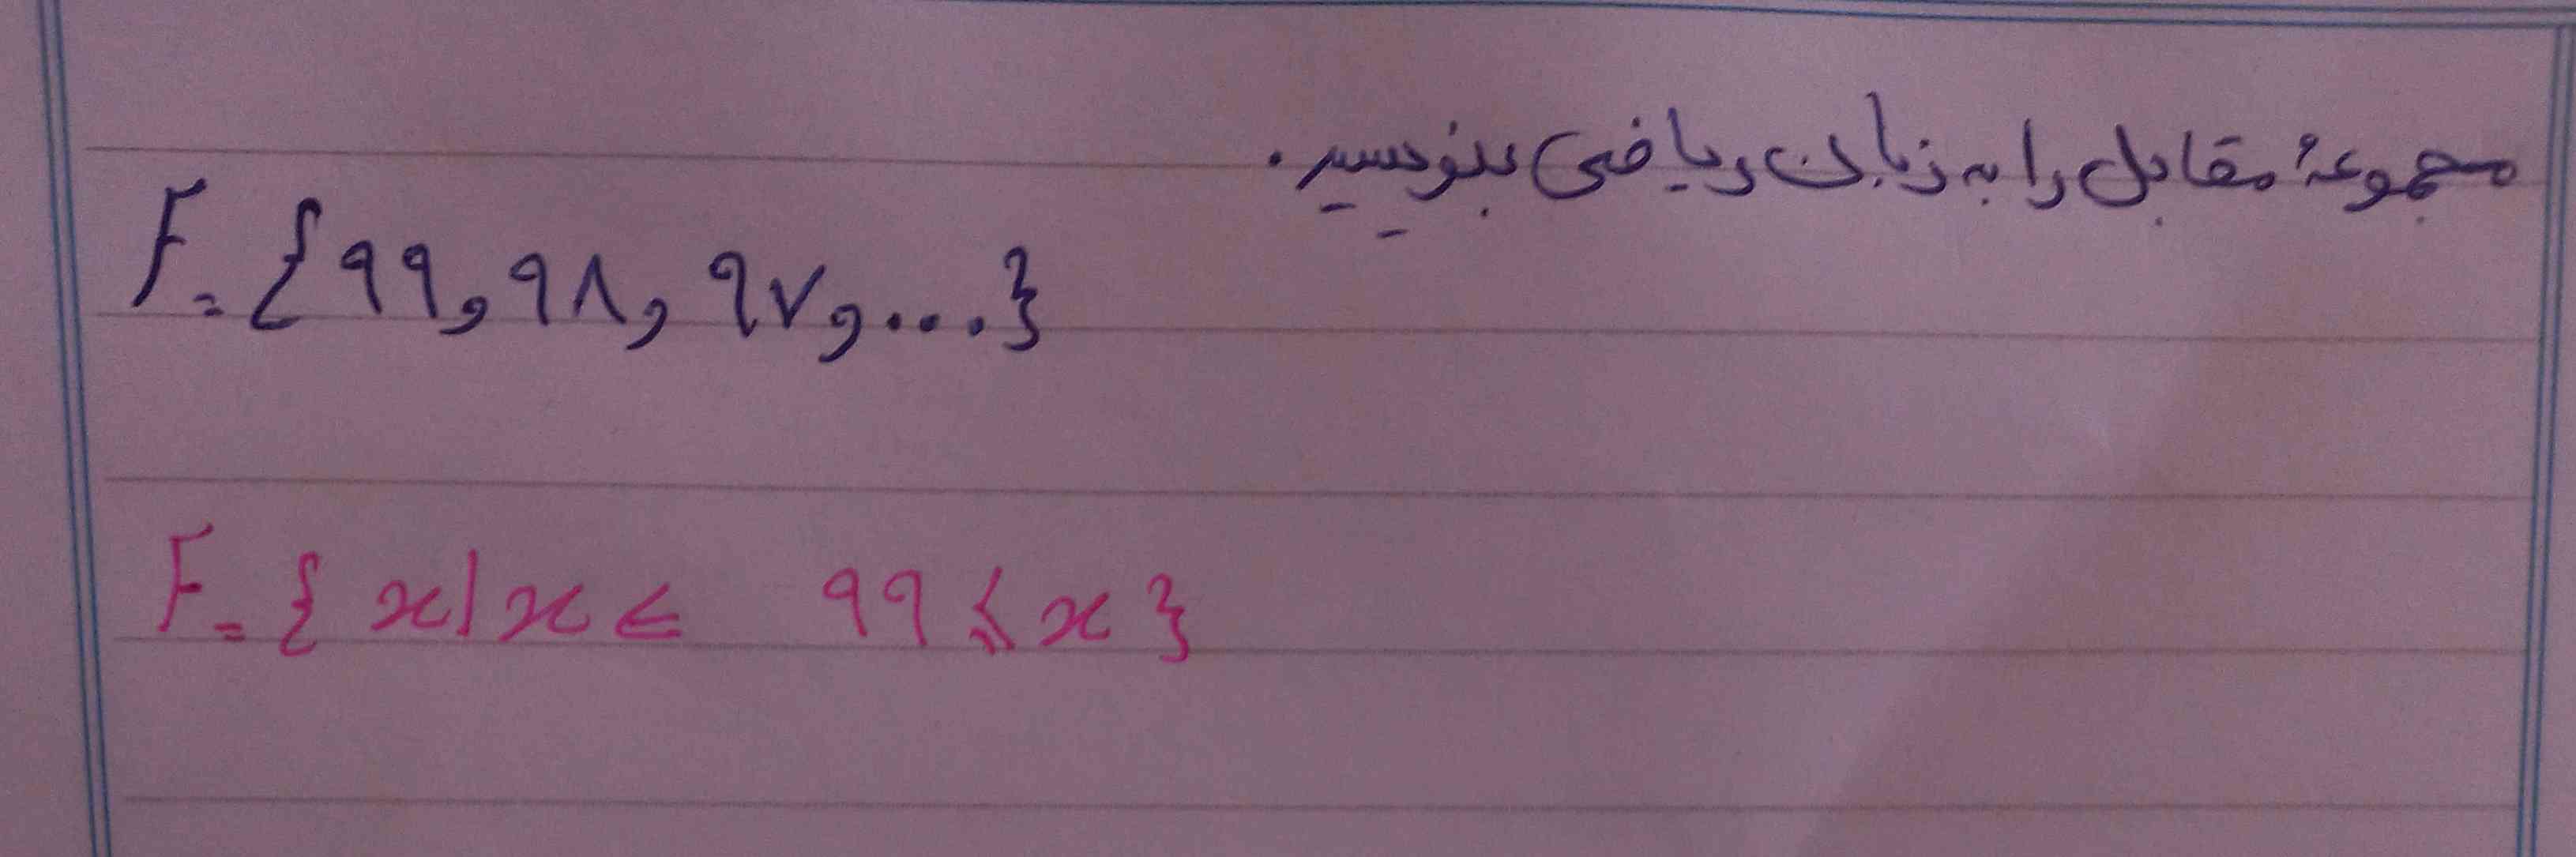 مجموعهٔ مقابل را به زبان ریاضی بنویسید.
F = {۹۹, ۹۸, ۹۷, ...}
F = { x | x ∈ ۹۹ ⩽ x }